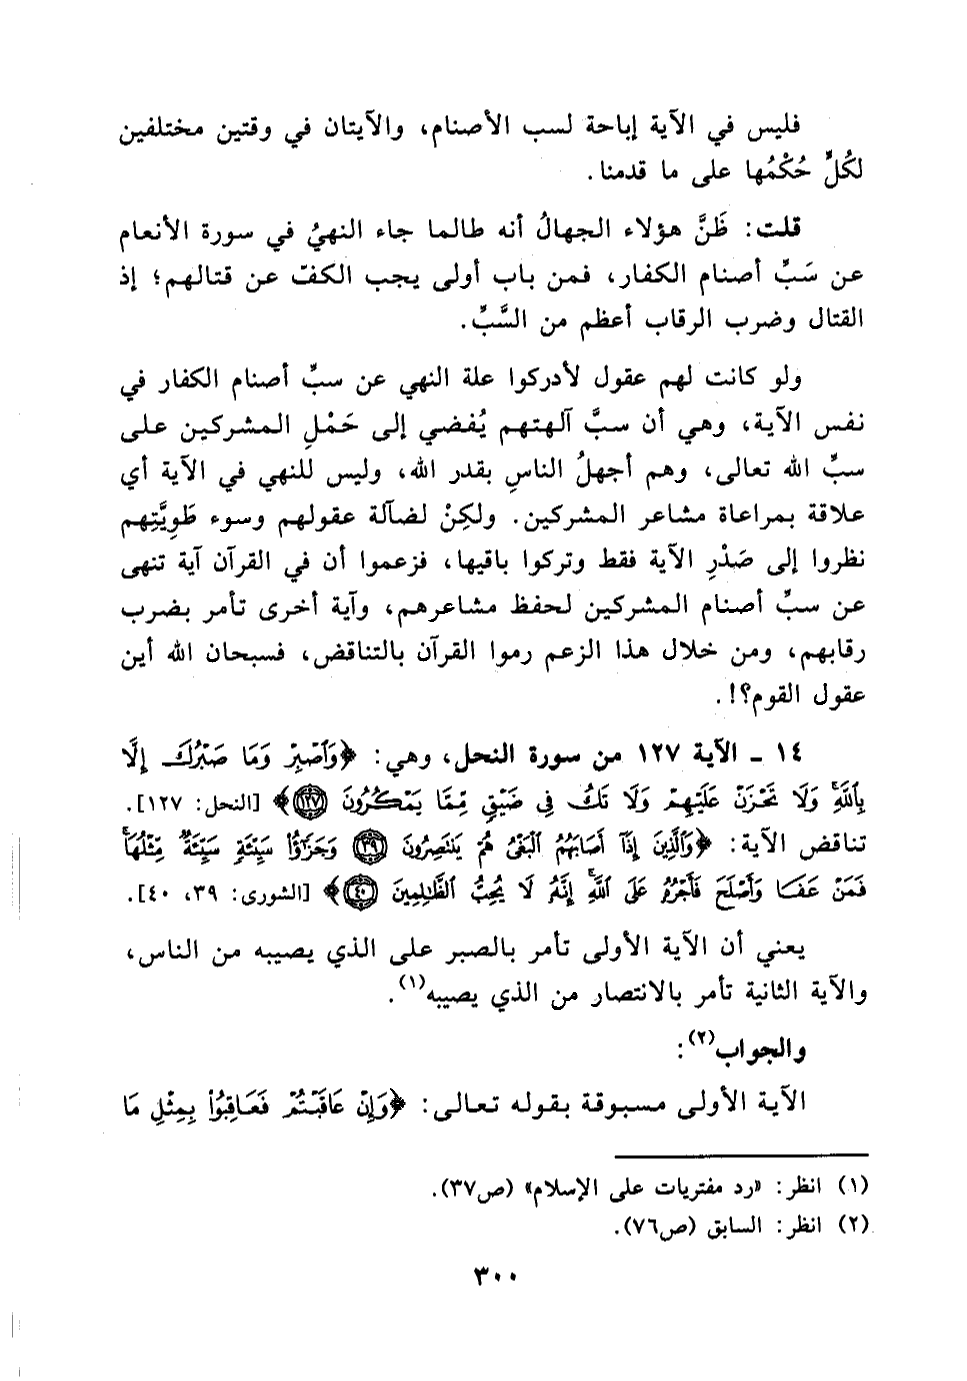 فليس في الآية إباحة لسب الأصنام، والآيتان في وقتين مختلفين
لكُلٍّ حُكْمُها على ما قدمنا.
قلت: ظَنَّ هؤلاء الجهالُ أنه طالما جاء النهيُ في سورة الأنعام
عن سَبِّ أصنام الكفار، فمن باب أولى يجب الكفّ عن قتالهم؛ إذ
القتال وضرب الرقاب أعظم من السَّبِّ.
ولو كانت لهم عقول لأدركوا علة النهي عن سبِّ أصنام الكفار في
نفس الآية، وهي أن سبَّ آلهتهم يُفضي إلى حَمْلِ المشركين على
سبِّ الله تعالى، وهم أجهلُ الناسِ بقدر الله، وليس للنهي في الآية أي
علاقة بمراعاة مشاعر المشركين. ولكِنْ لضآلة عقولهم وسوء طَوِيَّتِهم
نظروا إلى صَدْرِ الآية فقط وتركوا باقيها، فزعموا أن في القرآن آية تنهى
عن سبِّ أصنام المشركين لحفظ مشاعرهم، وآية أخرى تأمر بضرب
رقابهم، ومن خلال هذا الزعم رموا القرآن بالتناقض، فسبحان الله أين
عقول القوم؟!.
١٤ - الآية ١٢٧ من سورة النحل، وهي: ﴿وَٱصْبِرْ وَمَا صَبْرُكَ إِلَّا
بِٱللَّهِ ۚ وَلَا تَحْزَنْ عَلَيْهِمْ وَلَا تَكُ فِى ضَيْقٍ مِّمَّا يَمْكُرُونَ ١٢٧﴾ [النحل: ١٢٧].
تناقض الآية: ﴿وَٱلَّذِينَ إِذَآ أَصَابَهُمُ ٱلْبَغْىُ هُمْ يَنتَصِرُونَ ٣٩ وَجَزَٰٓؤُا۟ سَيِّئَةٍ سَيِّئَةٌ مِّثْلُهَا ۖ
فَمَنْ عَفَا وَأَصْلَحَ فَأَجْرُهُۥ عَلَى ٱللَّهِ ۚ إِنَّهُۥ لَا يُحِبُّ ٱلظَّٰلِمِينَ ٤٠﴾ [الشورى: ٣٩، ٤٠].
يعني أن الآية الأولى تأمر بالصبر على الذي يصيبه من الناس،
والآية الثانية تأمر بالانتصار من الذي يصيبه(١).
والجواب(٢):
الآية الأولى مسبوقة بقوله تعالى: ﴿وَإِنْ عَاقَبْتُمْ فَعَاقِبُوا۟ بِمِثْلِ مَا
(١) انظر: «رد مفتريات على الإسلام» (ص٣٧).
(٢) انظر: السابق (ص٧٦).
٣٠٠